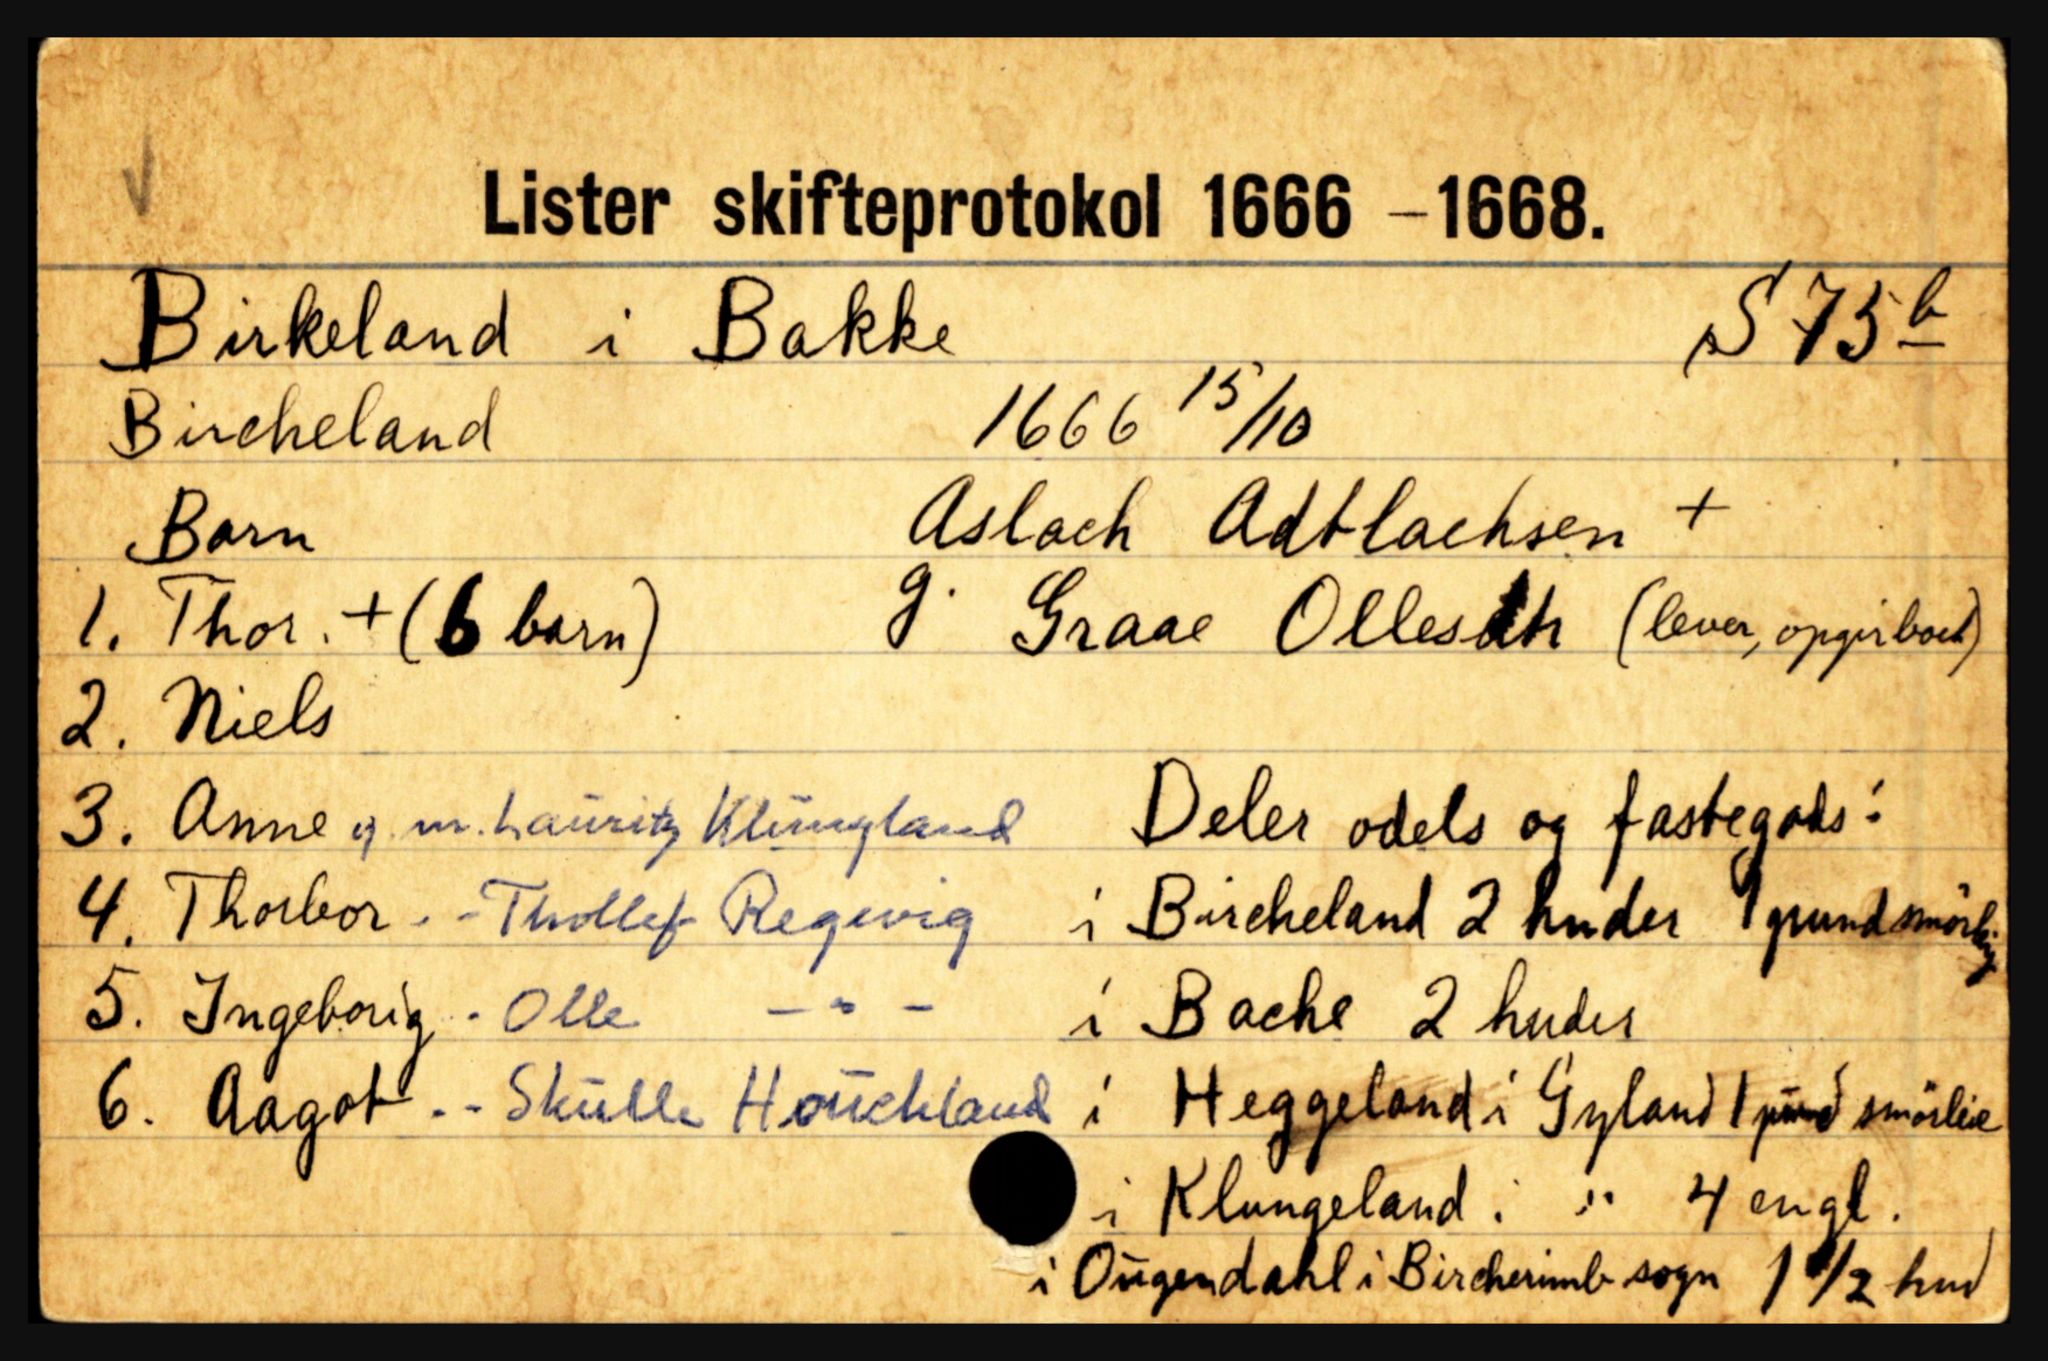 Lister skifteprotokol 1666 – 1668.
Birkeland i Bakke S 75 b
Bircheland 1666 15/10
Barn Aslach Adtlachsen +
1. Thor. + (6 barn) g. Graae Ollesdtr (lever, opgir boet)
2. Niels
3. Anne g. m. Lauritz Klungland Deler odels og fastegods:
4. Thorbor - - Thollef Regevig i Bircheland 2 huder 1 pund smörleig
5. Ingeborig - Olle - " - i Bache 2 huder
6. Aagot - - Skulle Houckland i Heggeland i Gyland 1 pund smörleie
i Klungeland i " 4 engl.
i Ougendahl i Bircherimb sogn 1 1/2 hud